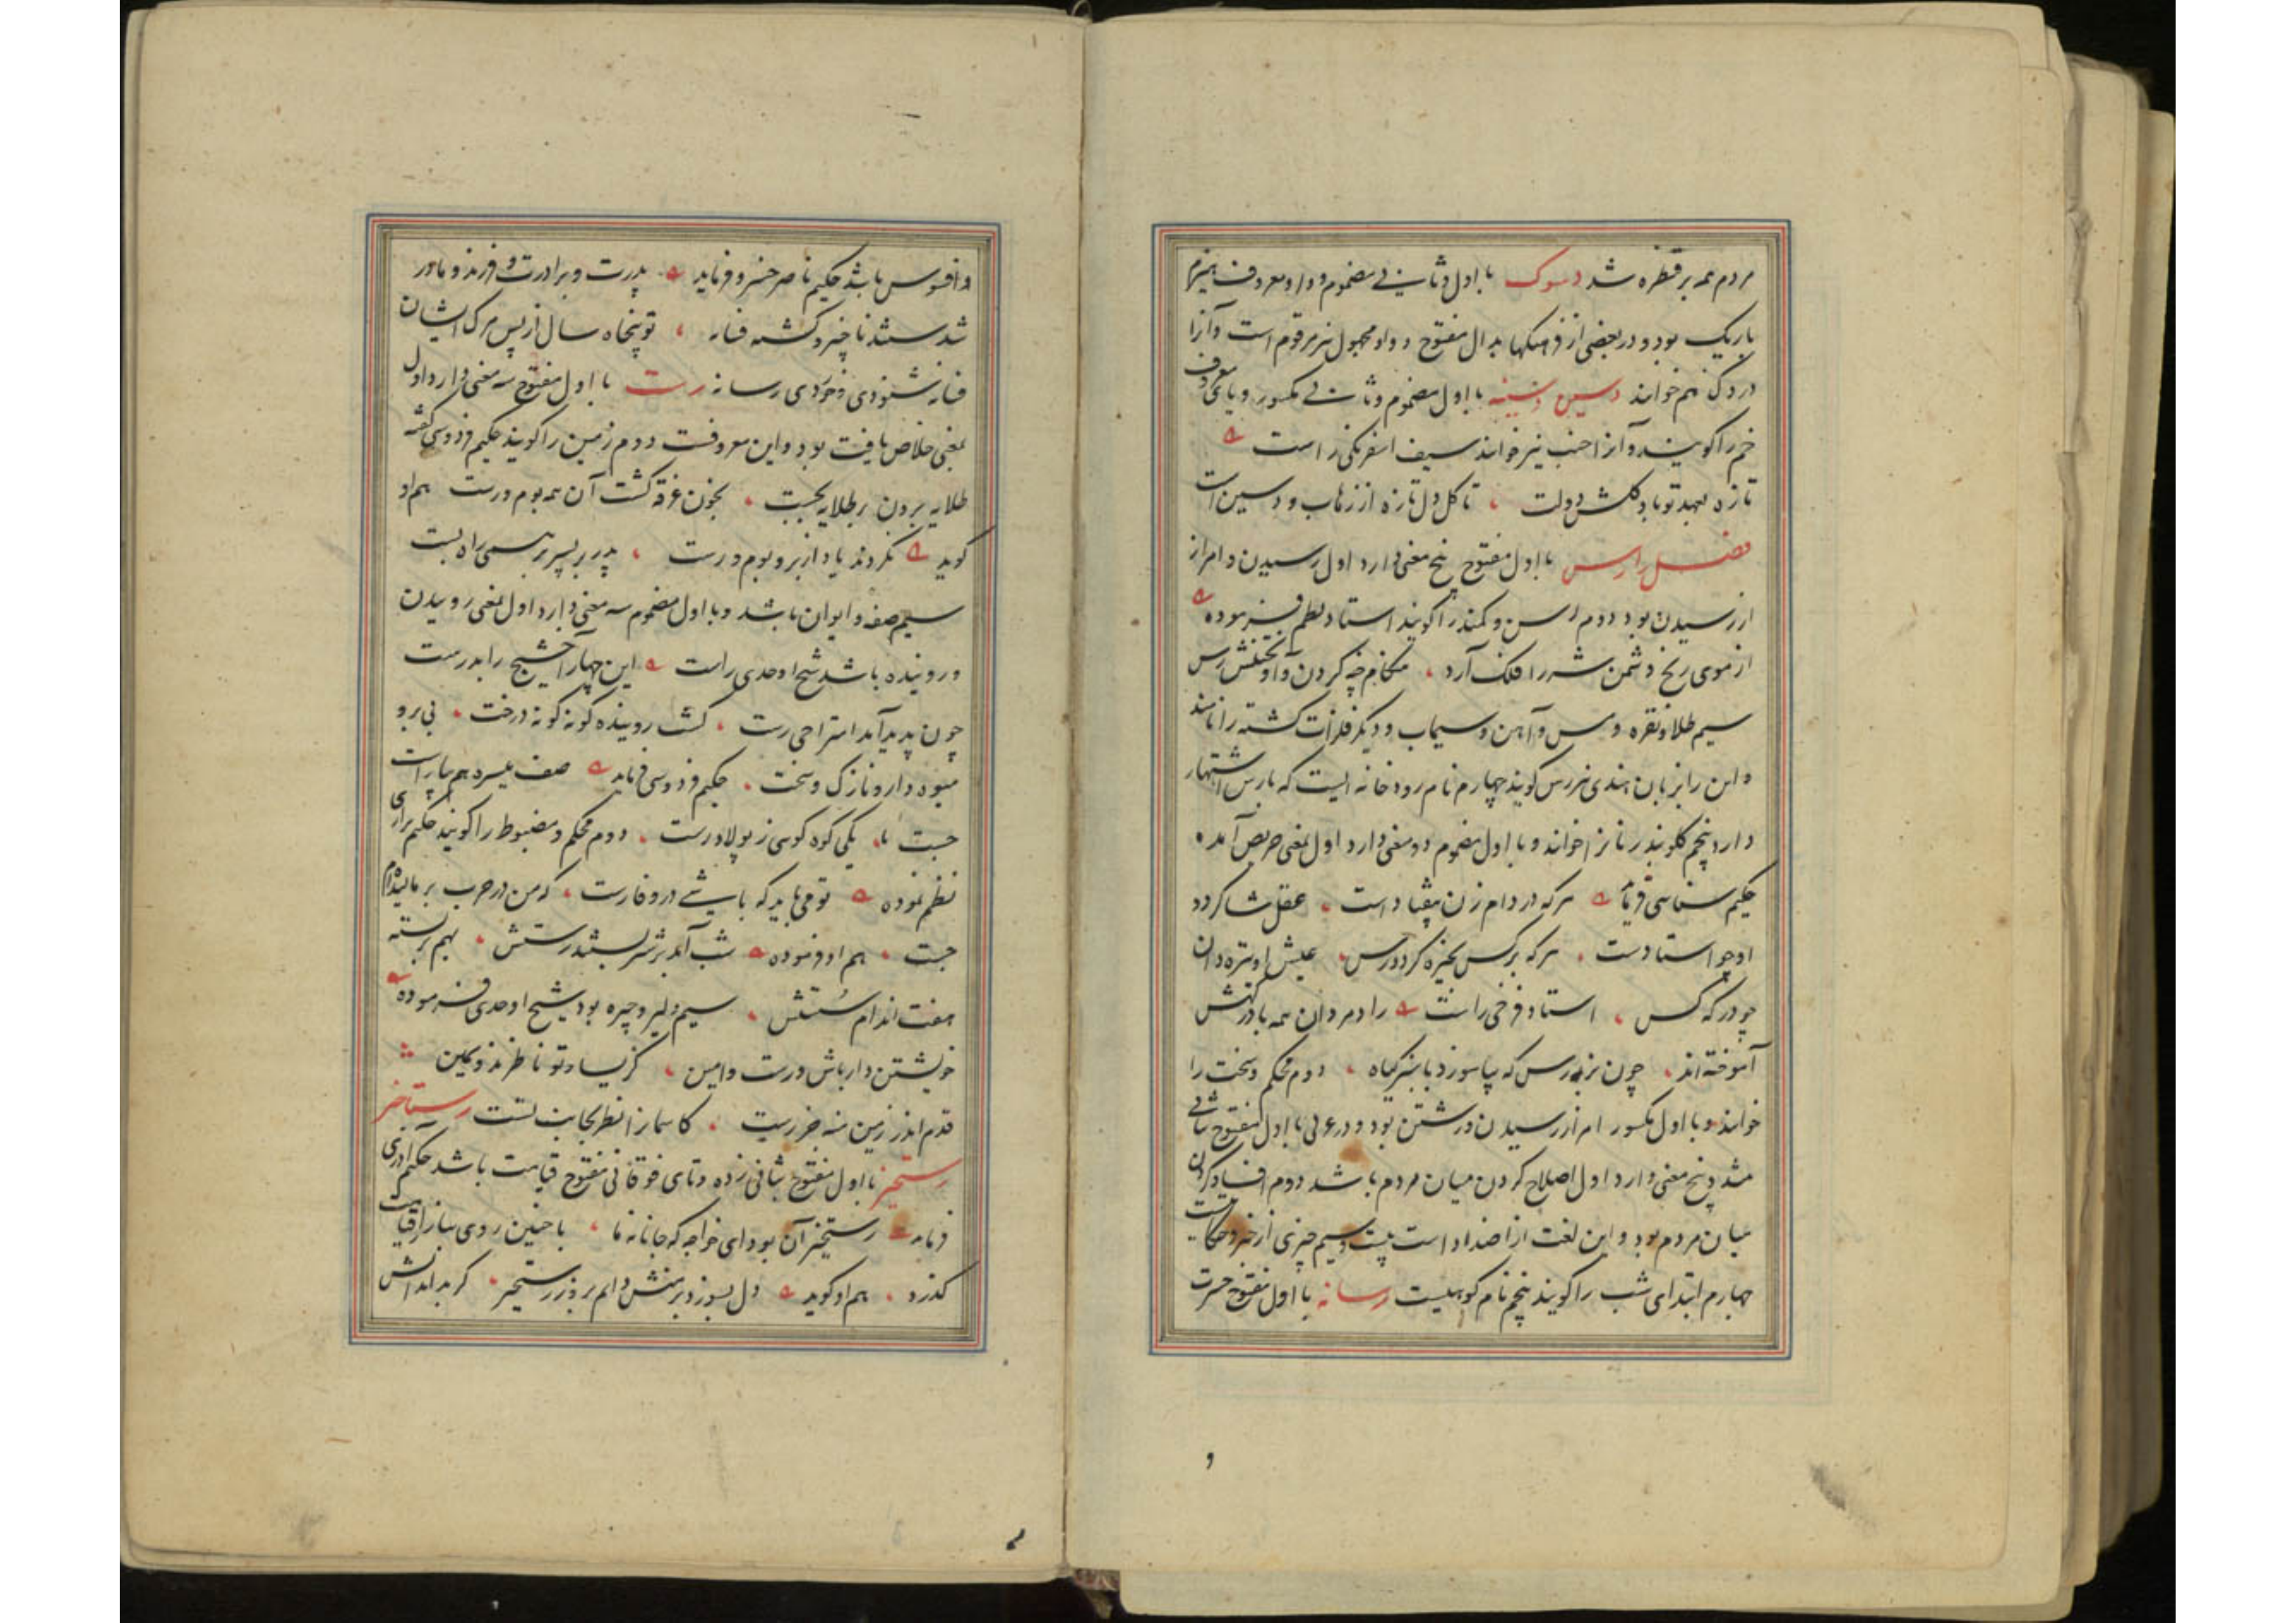 مردم همه بر قنطره شد دسوک با اول و ثانی مضموم و واو معروف هیزم
باریک بود و در بعضی از فرهنگها بدال مفتوح و واو مجهول نیز مرقوم است و آنرا
دردک هم خوانند دسین دسینه با اول مضموم و ثانی مکسور و یای معروف
خم را کویند و آنرا خنب نیز خوانند سیف اسفرنکی راست
تازه بعهد تو باد کلشن دولت تا کل دل تازه از رهاب و دسین است
فصل را رس با اول مفتوح پنج معنی دارد اول رسیدن و امر از
از رسیدن بود دوم رسن و کمند را کویند استاد نظم فرموده
از موی زنخ دشمن شه را فلک آرد کردن و آونختنش رس
سیم طلا و نقره و مس و آهن و سیماب و دیگر فلزات کشته را نامند
و این را بزبان هندی نیز رس کویند چهارم نام رودخانه ایست که بارس اشتهار
دارد پنجم کلوبند زنانرا خوانند و با اول مضموم دو معنی دارد اول بمعنی حریص آمده
حکیم سنایی فرماید هرکه در دام زن بیفتاد است عقل شاکرد
او چو استادست هرکه بر کس بخیره کردد رس عیش او تیره دان
چو در که کس استاد فرخی راست راد مردان همه با درکهش
آموخته اند چون بزه رس که بیاموزد با سبز کیاه دوم محکم و سخت را
خوانند و با اول مکسور امر از رسیدن و رشتن بود و در عربی با اول مفتوح ثانی
مشدد پنج معنی دارد اول اصلاح کردن میان مردم باشد دوم افساد کردن
میان مردم بود و این لغت از اضداد است سیم چیزی از خبر و حکایت
چهارم ابتدای شب را کویند پنجم نام کوهیست رسانه با اول مفتوح حسرت
و
و افسوس باشد حکیم ناصر خسرو فرماید پدرت و برادرت و فرزند و مادر
شدستند ناچیز و کشته فسانه تو پنجاه سال از پس مرک ایشان
فسانه شنودی و خوردی رسانه رست با اول مفتوح سه معنی دارد اول
بمعنی خلاص یافت بود و این معروفست دوم زمین را کویند حکیم فردوسی کفته
طلایه برون بر طلایه بجست بخون غرقه کشت آن همه بوم و رست هم او
کوید نکردند یاد از بر و بوم و رست پدر بر پسر بر همی راه بست
سیم صفه و ایوان باشد و با اول مضموم سه معنی دارد اول بمعنی روییدن
و روینده باشد شیخ اوحدی راست این چهار آخشیج را بدرست
چون پدید آمد امتزاجی رست کشت روینده کونه کونه درخت نی برو
میوه دار و نازک و سخت حکیم فردوسی فرماید صف میسره هم بیاراست
جست یکی کوه کوسی ز پولاد رست دوم محکم و مضبوط را کویند حکیم نزاری
نظم نموده تو می باید که باشی در وفا رست که من در حرب بر مالیده ام
جست هم او فرموده شب آمد بزنجیر بستند رستش بهم بر بسته
هفت اندام سستش سیم دلیر و چیره بود شیخ اوحدی فرموده
خویشتن دار باش و رست و امین کز یسار تو ناظرند و یمین
قدم اندر زمین منه جز رست کآسمانرا نظر بجانب تست رستاخیز
رستخیز با اول مفتوح بثانی زده و تای فوقانی مفتوح قیامت باشد حکیم آذری
فرماید رستخیز آن بود ای خواجه که جانانه ما با چنین روی ببازار قیامت
کذرد هم او کوید دل بسوزد بر منش دایم بروز رستخیز کر بداند آتش